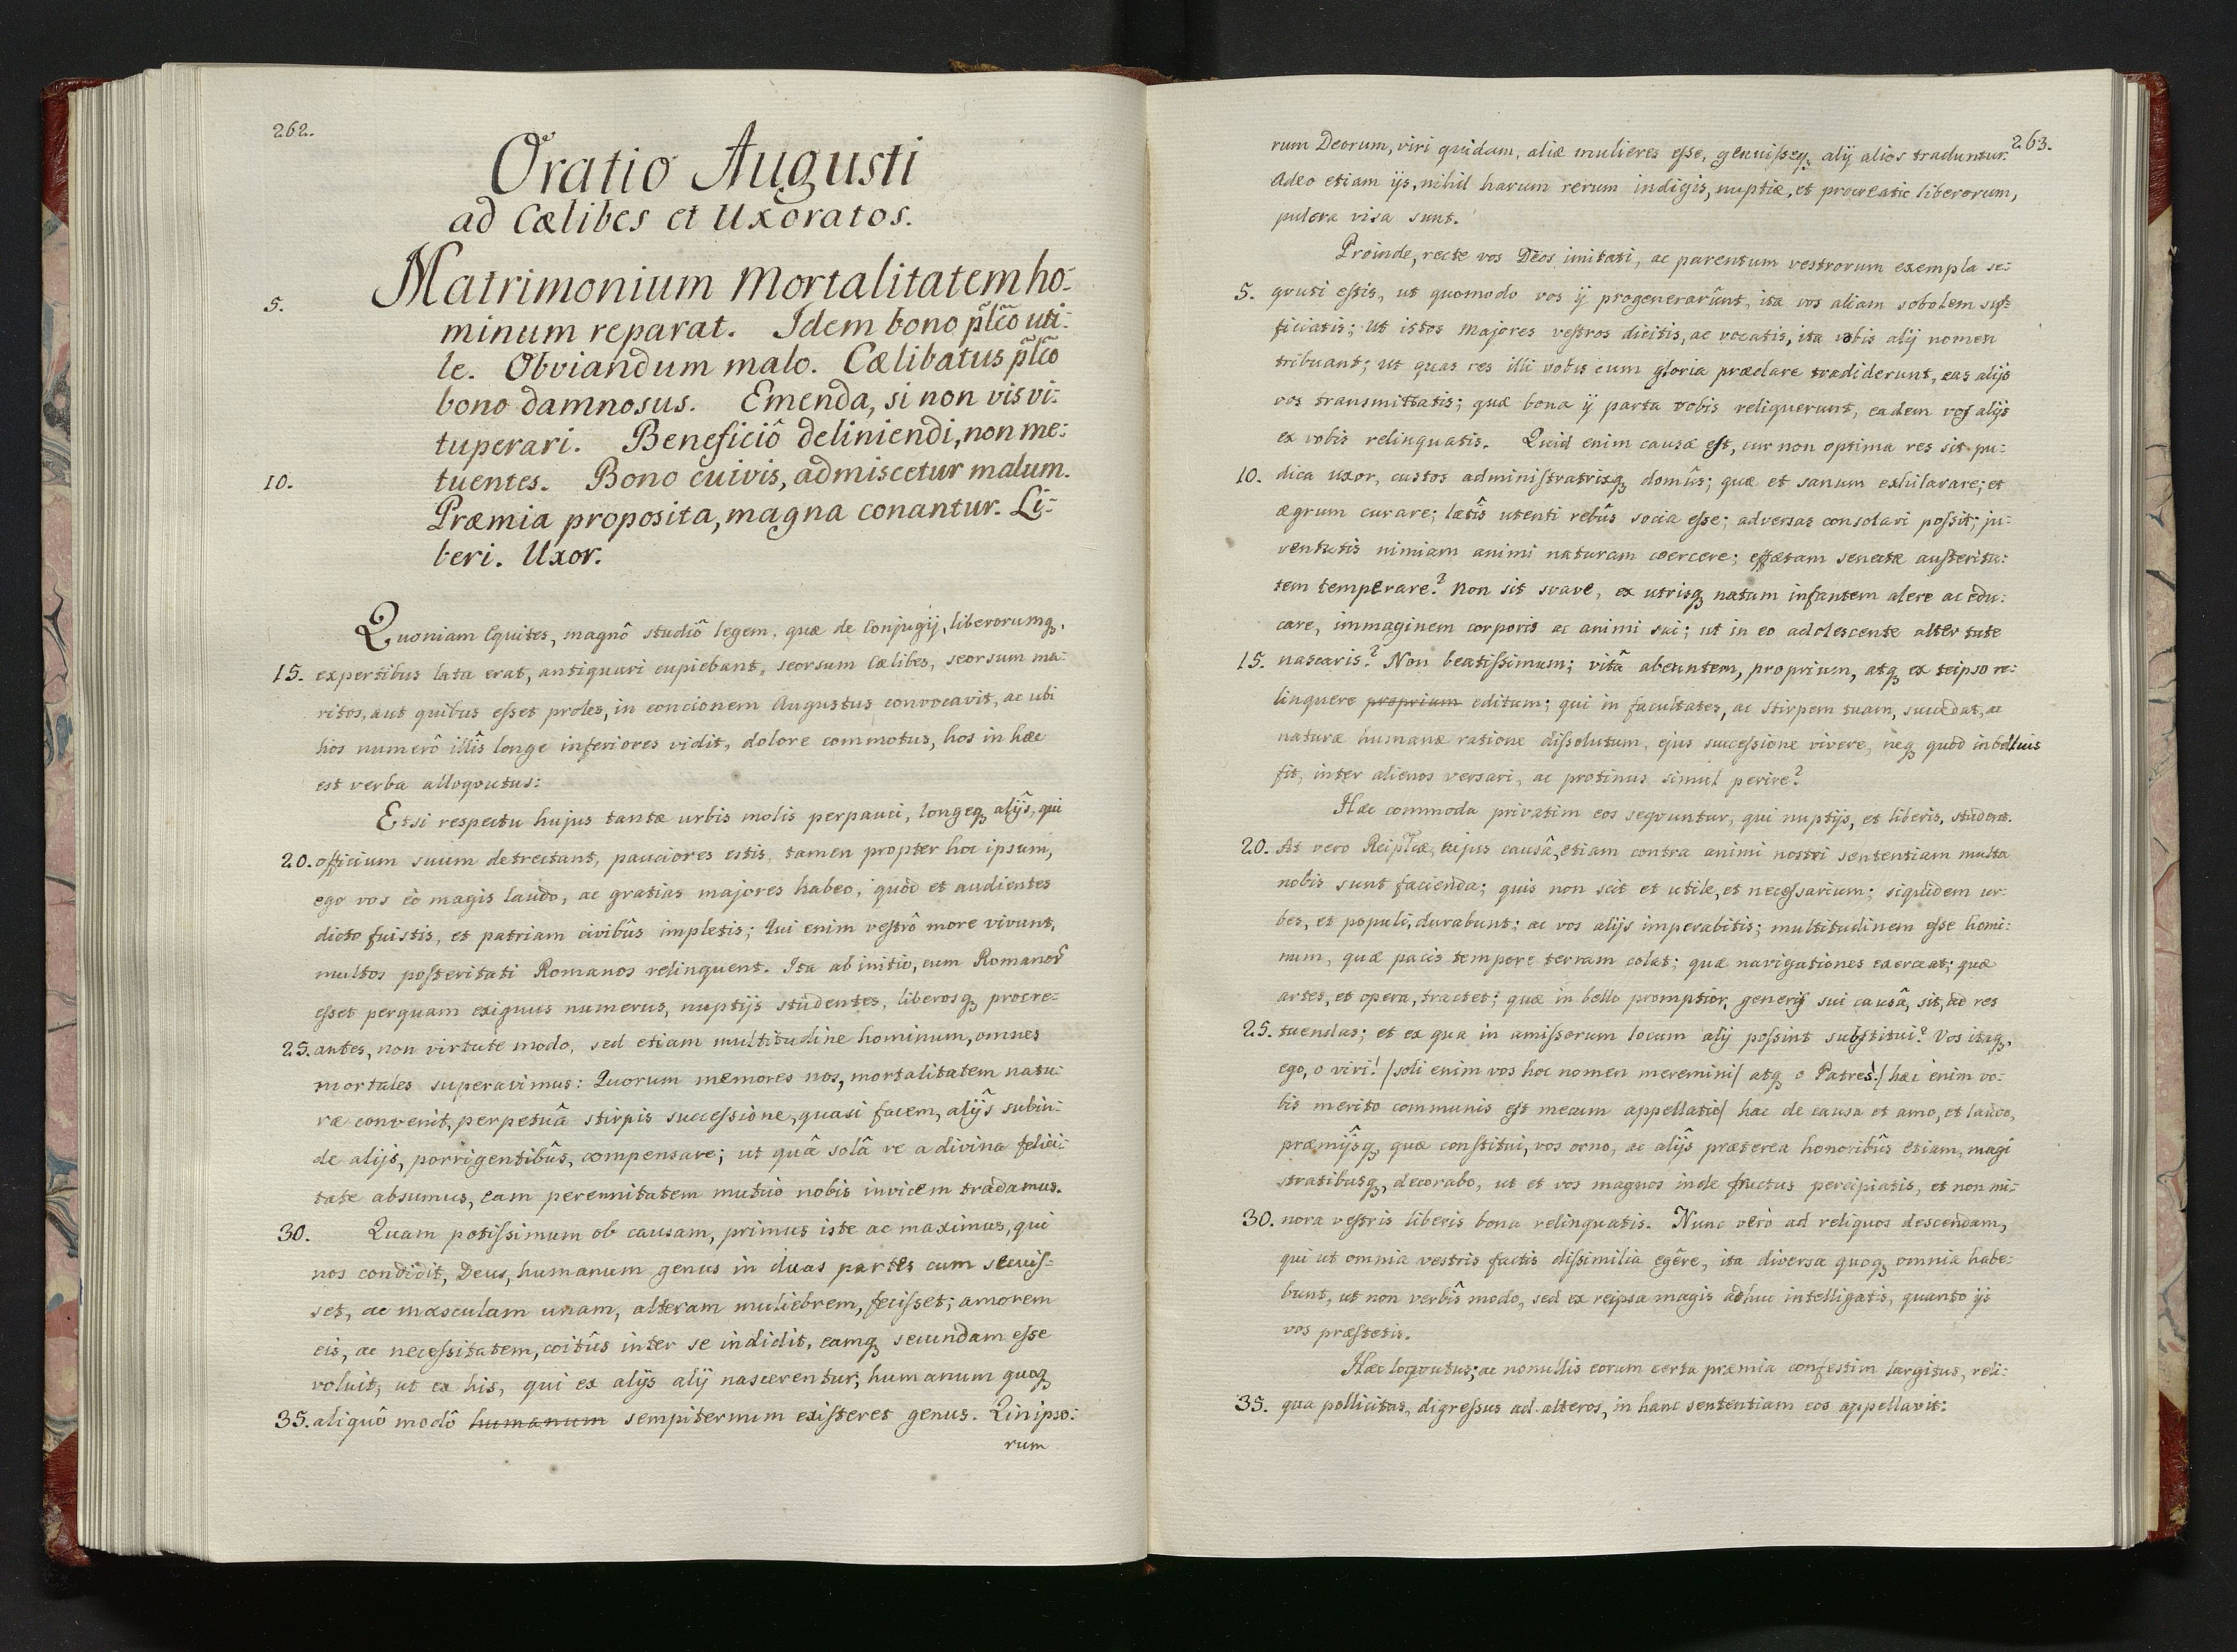 262.
Oratio Augusti
ad Cælibes et Uxoratos.
Matrimonium Mortalitatem ho-
5. minum reparat. Idem bono p̃lc̃o uti-
le. Obviandum malo. Cælibatus p̃lc̃o
bono damnosus. Emenda, si non vis vi:
tuperari. Beneficiô deliniendi, non me:
10. tuentes. Bono cuivis, admiscetur malum.
Præmia proposita, magna conantur. Li:
beri. Uxor.
Quoniam Equites, magnô studiô legem, quæ de Conjugij, liberorumq,
15. expertibus lata erat, antiquari cupiebant, seorsum Cælibes, seorsum ma:
ritos, aut quibus esset proles, in concionem Augustus convocavit, ac ubi
hos numerô illîs longe inferiores vidit, dolore commotus, hos in hæc
est verba alloqvutus:
Etsi respectu hujus tantæ urbis molis perpauci, longeq alijs, qui
20. officium suum detrectant, pauciores estis, tamen propter hoc ipsum,
ego vos eò magis laudo, ac gratias majores habeo, quòd et audientes
dicto fuistis, et patriam civibûs impletis; Qui enim vestrô more vivunt,
multos posteritati Romanos relinquent. Ita ab initio, cum Romanor̃
esset perquam exiguus numerus, nuptijs studentes, liberosq procre-
25. antes, non virtute modo, sed etiam multitudine hominum, omnes
mortales superavimus: Quorum memores nos, mortalitatem natu:
ræ convenit, perpetuâ stirpis successione, quasi facem, alijs subin:
de alijs, porrigentibûs, compensare; ut quâ solâ re a divina felici:
tate absumus, eam perennitatem mutuò nobis invicem tradamus.
30. Quam potissimum ob causam, primus iste ac maximus, qui
nos condidit, Deus, humanum genus in duas partes cum secuis-
set, ac masculam unam, alteram muliebrem, fecisset; amorem
eis, ac necessitatem, coitûs inter se indidit, eamq secundam esse
voluit; ut ex his, qui ex alijs alij nascerentur, humanum quoq
35. aliquô modô humanum sempiternum existeret genus. Qin ipso:
rum
263.
rum Deorum, viri quidam, aliæ mulieres esse, genuisseq alij alios traduntur.
Adeo etiam ijs, nihil harum rerum indigis, nuptiæ, et procreatio liberorum,
pulcra visa sunt.
Proinde, recte vos Deos imitati, ac parentum vestrorum exempla se:
5. qvuti estis, ut quomodo vos ij progenerarûnt, ita vos aliam sobolem suf-
ficiatis; ut istos majores vestros dicitis, ac vocatis, ita vobis alij nomen
tribuant; ut quas res illi vobis cum gloria præclare tradiderunt, eas alijs
vos transmittatis; quæ bona ij parta vobis reliquerunt, eadem vos alijs
ex vobis relinquatis. Quid enim causæ est, cur non optima res sit pu:
10. dica uxor, custos administratrixq domûs; quæ et sanum exhilarare; et
ægrum curare; lætîs utenti rebûs socia esse; adversas consolari possit; ju:
ventutis nimiam animi naturam coercere; effætam senectæ austerita:
tem temperare? Non sit svave, ex utrisq natum infantem alere ac edu:
care, immaginem corporis ac animi sui; ut in eo adolescente alter tute
15. nascaris? Non beatissimum; vitâ abeuntem, proprium, atq ex teipso re:
linquere proprium editum; qui in facultates, ac stirpem tuam, succedat, ac
naturæ humanæ ratione dissolutum, ejus successione vivere, neq quòd in belluis
fit, inter alienos versari, ac protinus simul perire?
Hæc commoda privatim eos seqvuntur, qui nuptijs, et liberis, student.
20. At vero Reip̃lcæ, cujus causâ, etiam contra animi nostri sententiam multa
nobis sunt facienda; quis non scit et utile, et necessarium; siquidem ur:
bes, et populi, durabunt; ac vos alijs imperabitis; multitudinem esse homi:
num, quæ pacis tempore terram colat; quæ navigationes exerceat; quæ
artes, et opera, tractet; quæ in bello promptior, generis sui causâ, sit, ad res
25. tuendas; et ex qua in amissorum locum alij possint substitui? Vos itaq,
ego, o viri! /soli enim vos hoc nomen meremini/ atq o Patres! / hæc enim vo:
bis merito communis est mecum appellatio/ hac de causa et amo, et laudo,
præmijsq, quæ constitui, vos orno, ac alijs præterea honoribûs etiam, magi
stratibusq, decorabo, ut et vos magnos inde fructus percipiatis, et non mi:
30. nora vestris liberis bona relinquatis. Nunc verò ad reliquos descendam,
qui ut omnia vestris factis dissimilia egêre, ita diversa quoq omnia habe:
bunt, ut non verbîs modo, sed ex reipsa magis adhuc intelligatis, quanto ijs
vos præstetis.
Hæc loqvutus; ac nonullis eorum certa præmia confestim largitus, reli:
35. qua pollicitus, digressus ad alteros, in hanc sententiam eos appellavit: